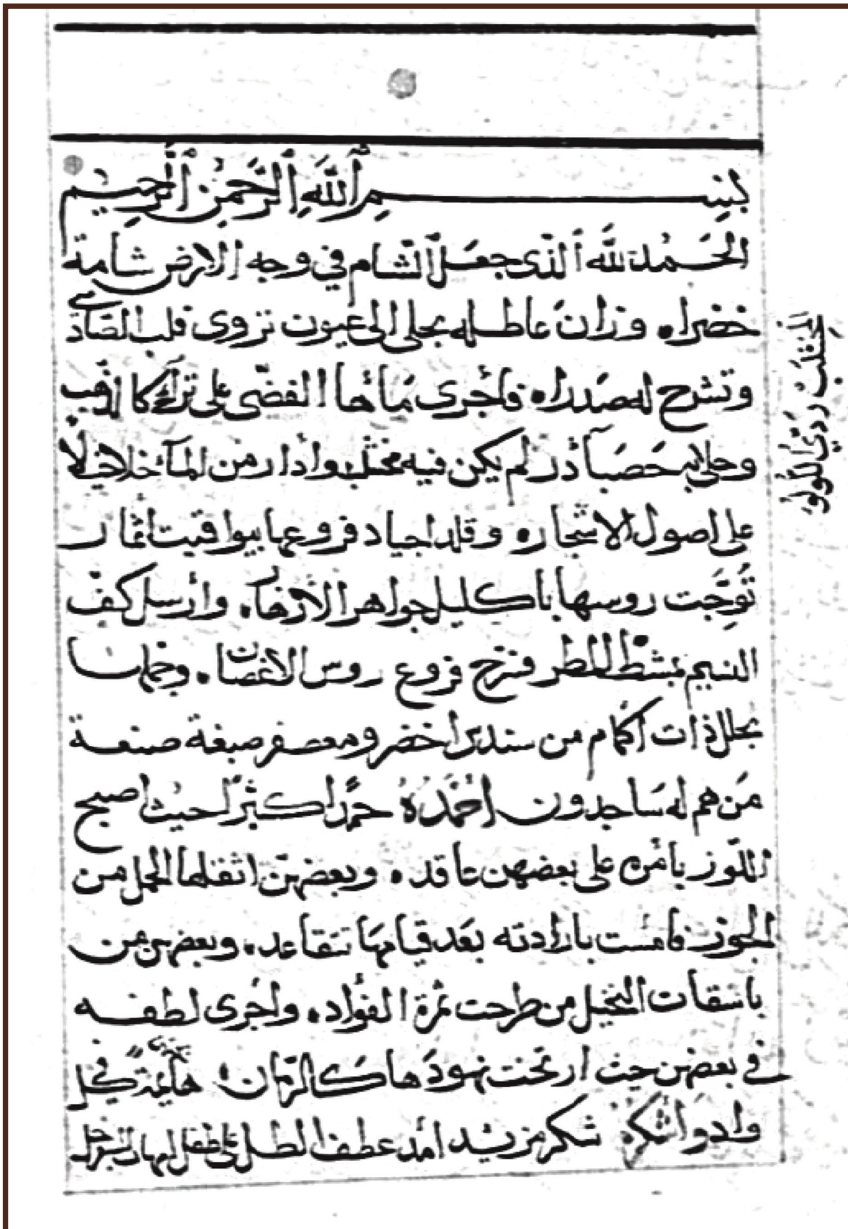 بسم الله الرحمن الرحيم
الحمد لله الذى جعل الشام في وجه الارض شامة
خضراء وزان عاطله بحلى الى عيون تروى قلب الصادى
وتشرح له صدرا، فأجرى ماءها الفضى على تراب كالذهب
وحلى به حصباء در لم يكن فيه مخشلب وأدار من الماء خلاخيلا
على اصول الاشجار، وقلد اجياد فروعها بيواقيت اثمار
تُوّجت روسها باكليل جواهر الازهار، وأرسل كف
النسيم بمشط المطر فسرح فروع روس الاغصان، وخصها
بحلل ذات أكمام من سندس اخضر ومعصفر صبغة صنعة
من هم له ساجدون احمده حمدا كثيرا حيث اصبح
اللوز بأمره على بعضهن عاقد، وبعضهن اثقلها الحمل من
الجوز فامست بارادته بعد قيامها تتقاعد، وبعضهن من
باسقات النخيل من طرحت ثمرة الفؤاد، واجرى لطفه
في بعضهن حيث ارتخت نهودها كالرمان هائمة في كل
واد وأشكره شكر مزيد امد عطف الظل على طفل النهار
المخشلب ردي اللولو